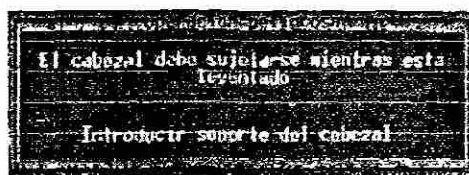 El cabezal debe sujetarse mientras esta
levantado
Introducir soporte del cabezal